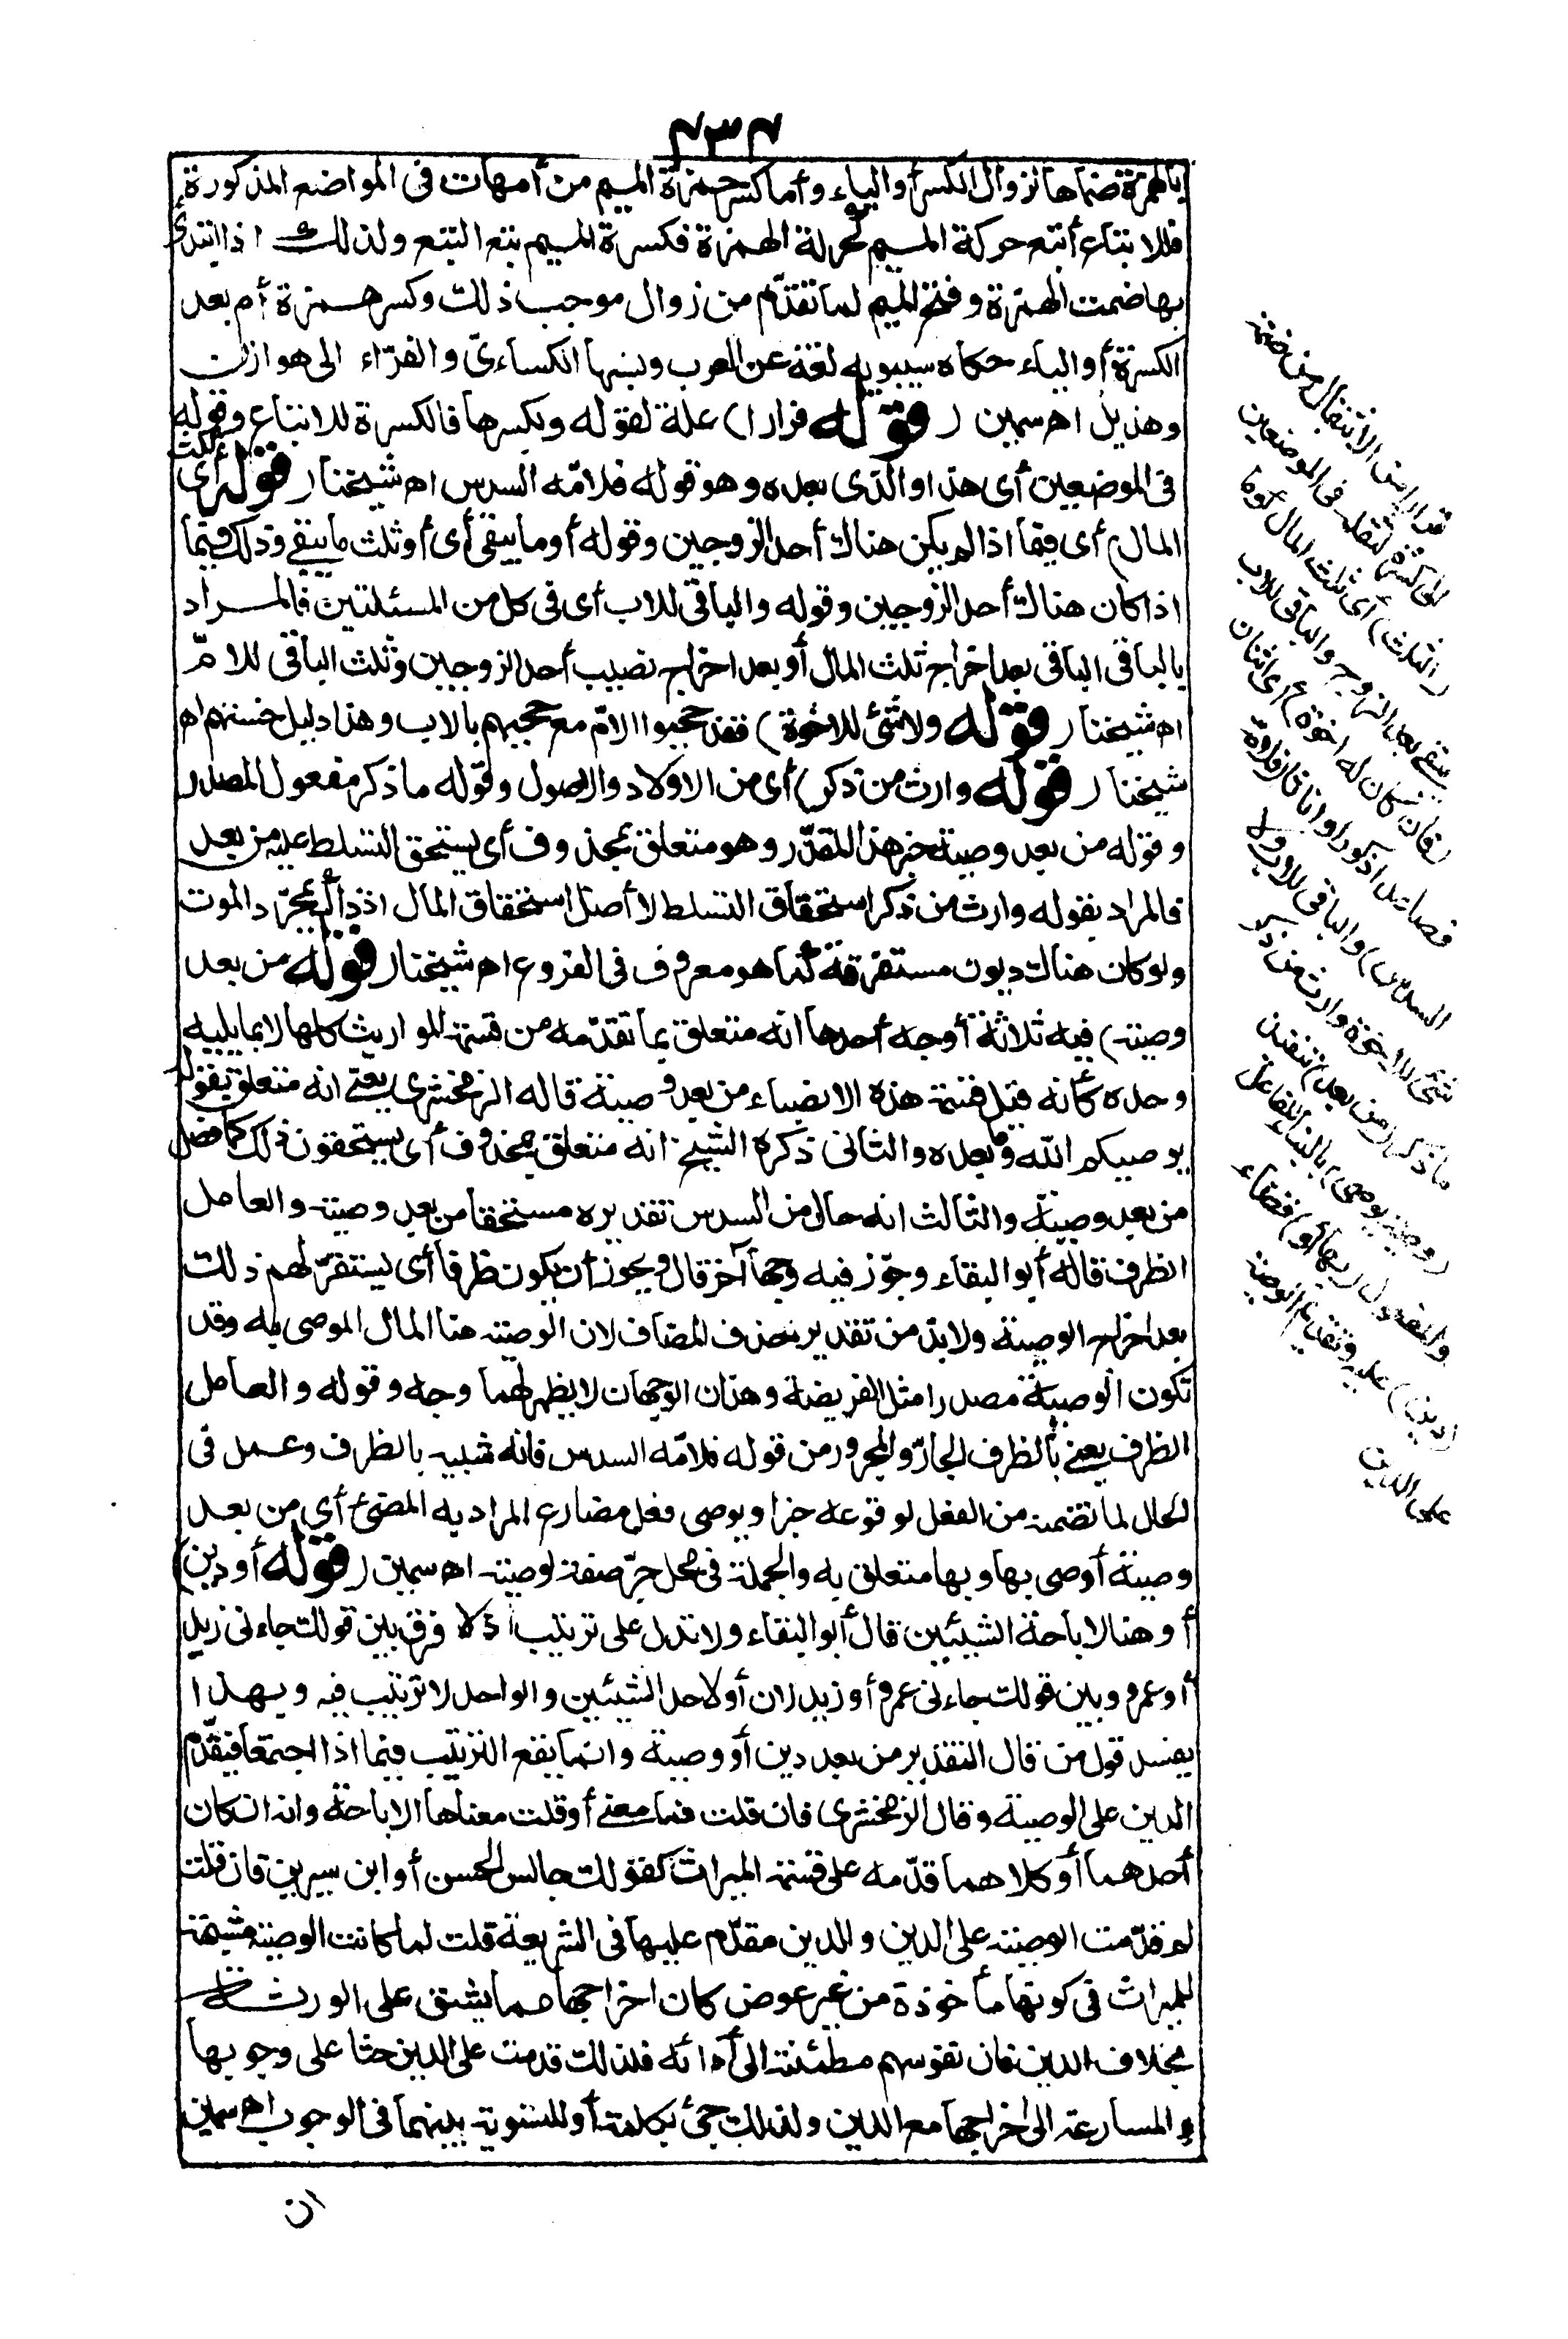 ٤٣٢
بالهمزة ضماها لزوال الكسر أو الياء وأما كسر حمزة الميم من أمهات في المواضع المذكورة
فللاتباع أتبع حركة الميم لحركة الهمزة فكسرة الميم تبع التبع ولذلك اذا ابتدئ
بها ضمت الهمزة وفتح الميم لما تقدّم من زوال موجب ذلك وكسر همزة أم بعد
الكسرة أو الياء حكاه سيبويه لغة عن العرب ونسبها الكساءىّ والفرّاء الى هوازن
وهذيل اه سمين ( قوله فرارا) علة لقوله وبكسرها فالكسرة للاتباع وقوله
في الموضعين أى هذا والذى بعده وهو قوله فلامّه السدس اه شيخنا ( قوله أى ثلث
المال) أى فيما اذا لم يكن هناك أحد الزوجين وقوله أو ما يبقى أى أو ثلث ما يبقى وذلك فيما
اذا كان هناك أحد الزوجين وقوله والباقى للاب أى فى كل من المسئلتين فالمراد
بالباقى الباقى بعد اخراج ثلث المال أو بعد اخراج نصيب أحد الزوجين وثلث الباقى للامّ
اه شيخنا ( قوله ولا شئ للاخوة) فقد حجبوا الامّ مع حجبهم بالاب وهذا دليل خستهم اه
شيخنا ( قوله وارث من ذكر) أى من الاولاد والاصول وقوله ما ذكر مفعول المصدر
وقوله من بعد وصية خبر هذا المقدّر وهو متعلق بمحذوف أى يستحق التسلط عليه من بعد
فالمراد بقوله وارث من ذكر استحقاق التسلط لا أصل استحقاق المال اذ ذاك بمجرّد الموت
ولو كان هناك ديون مستغرقة كما هو معروف فى الفروع اه شيخنا ( قوله من بعد
وصية) فيه ثلاثة أوجه أحدها انه متعلق بما تقدّمه من قسمة المواريث كلها لا بما يليه
وحده كأنه قيل قسمة هذه الانصباء من بعد وصية قاله الزمخشرى يعنى انه متعلق بقوله
يوصيكم الله وما بعده والثانى ذكره الشيخ انه متعلق بمحذوف أى يستحقون ذلك كما فصل
من بعد وصية والثالث انه حال من السدس تقديره مستحقا من بعد وصية والعامل
الظرف قاله أبو البقاء وجوّز فيه وجها آخر قال ويجوز أن يكون ظرفا أى يستقرّ لهم ذلك
بعد اخراج الوصية ولا بدّ من تقدير حذف المضاف لان الوصية هنا المال الموصى به وقد
تكون الوصية مصدرا مثل الفريضة وهذان الوجهان لا يظهر لهما وجه وقوله والعامل
الظرف يعنى بالظرف الجارّ والمجرور من قوله فلامّه السدس فانه شبيه بالظرف وعمل فى
الحال لما تضمنه من الفعل لوقوعه خبرا ويوصى فعل مضارع المراد به المضىّ أى من بعد
وصية أوصى بها وبها متعلق به والجملة فى محل جرّ صفة لوصية اه سمين ( قوله أو دين)
أو هنا لاباحة الشيئين قال أبو البقاء ولا تدل على ترتيب اذ لا فرق بين قولك جاءنى زيد
أو عمرو وبين قولك جاءنى عمرو أو زيد لان أو لاحد الشيئين والواحد لا ترتيب فيه وبهذا
يفسد قول من قال التقدير من بعد دين أو وصية وانما يقع الترتيب فيما اذا اجتمعا فيقدّم
الدين على الوصية وقال الزمخشرى فان قلت فما معنى أو قلت معناها الاباحة وانه ان كان
أحدهما أو كلاهما قدّمه على قسمة الميراث كقولك جالس الحسن أو ابن سيرين فان قلت
لم قدّمت الوصية على الدين والدين مقدّم عليها فى الشريعة قلت لما كانت الوصية مشبهة
للميراث فى كونها مأخوذة من غير عوض كان اخراجها مما يشق على الورثة
بخلاف الدين فان نفوسهم مطمئنة الى أدائه فلذلك قدمت على الدين حثا على وجوبها
والمسارعة الى اخراجها مع الدين ولذلك جئ بكلمة أو للتسوية بينهما فى الوجوب اه سمين
ان
فرارا من الانتقال من ضمة
الى كسرة لثقله فى الموضعين
(الثلث) أى ثلث المال أو ما
يبقى بعد الزوج والباقى للاب
(فان كان له اخوة) أى اثنان
فصاعدا ذكورا أو اناثا (فلامه
السدس) والباقى للاب ولا
شئ للاخوة وارث من ذكر
ما ذكر (من بعد) تنفيذ
(وصية يوصى) بالبناء للفاعل
والمفعول (بها أو) قضاء
(دين) عليه وتقديم الوصية
على الدين